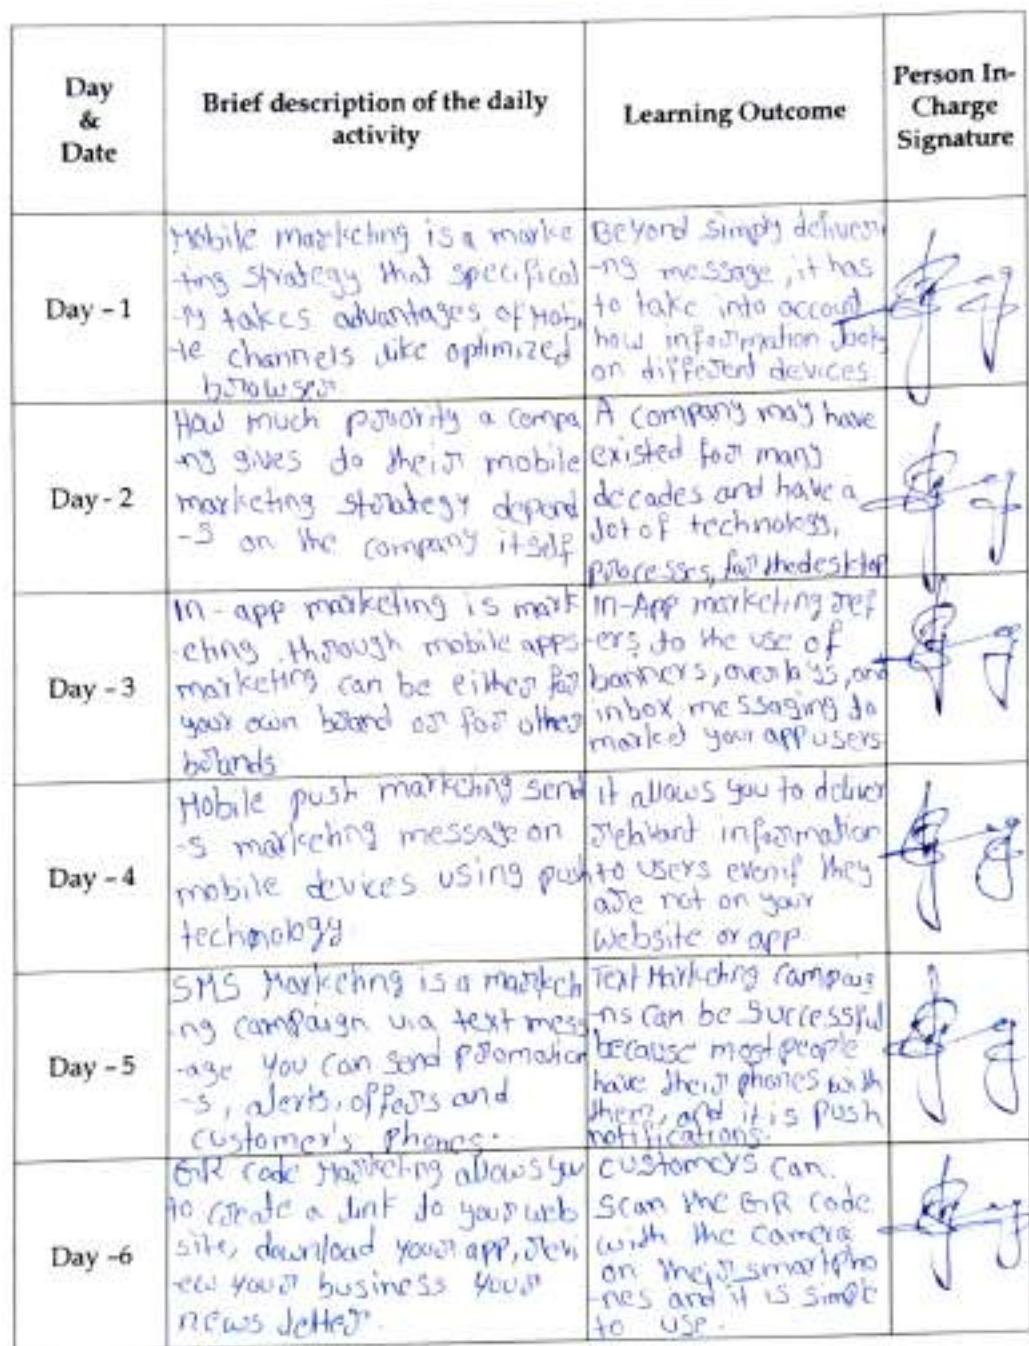 Day
&
Date
Brief description of the daily
activity
Learning Outcome
Person In-
Charge
Signature
Day - 1
Mobile marketing is a marke
-ting strategy that specifical
-ly takes advantages of Mobi
-le channels like optimized
browser.
Beyond simply deliveri
-ng message, it has
to take into account
how information looks
on different devices
Day - 2
How much priority a compa
-ny gives to their mobile
marketing strategy depend
-s on the company itself
A company may have
existed for many
decades and have a
lot of technology,
processes, for the desktop
Day - 3
In-app marketing is mark
-eting through mobile apps
marketing can be either for
your own brand or for other
brands
In-App marketing ref
-ers to the use of
banners, overlays, and
inbox messaging to
market your app users
Day - 4
Mobile push marketing send
-s marketing message on
mobile devices using push
technology.
it allows you to deliver
relavant information
to users even if they
are not on your
website or app.
Day - 5
SMS Marketing is a marketi
-ng campaign via text mess
-age you can send promotion
-s, alerts, offers and
customer's phones.
Text Marketing campaig
-ns can be successful
because most people
have their phones with
them, and it is push
notifications.
Day -6
QR code Marketing allows you
to create a link to your web
site, download your app, revi
-ew your business your
news letter.
customers can
scan the QR code
with the camera
on their smartpho
-nes and it is simple
to use.